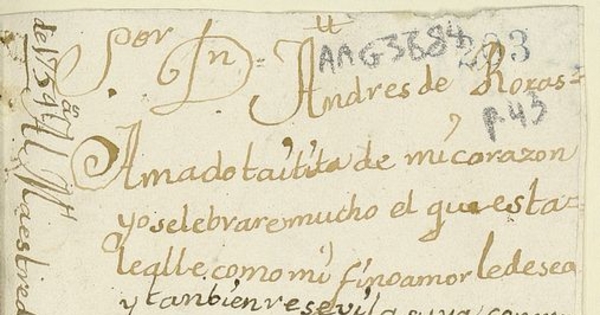 Sor Dn = Andres de Rozas =
AAG3684
203
P-43
Amado taitita de mi corazon
yo selebrare mucho el que esta=
le alle como mi fino amor le desea
y tanbien resevi la suya
de 1759 Al Maestre d